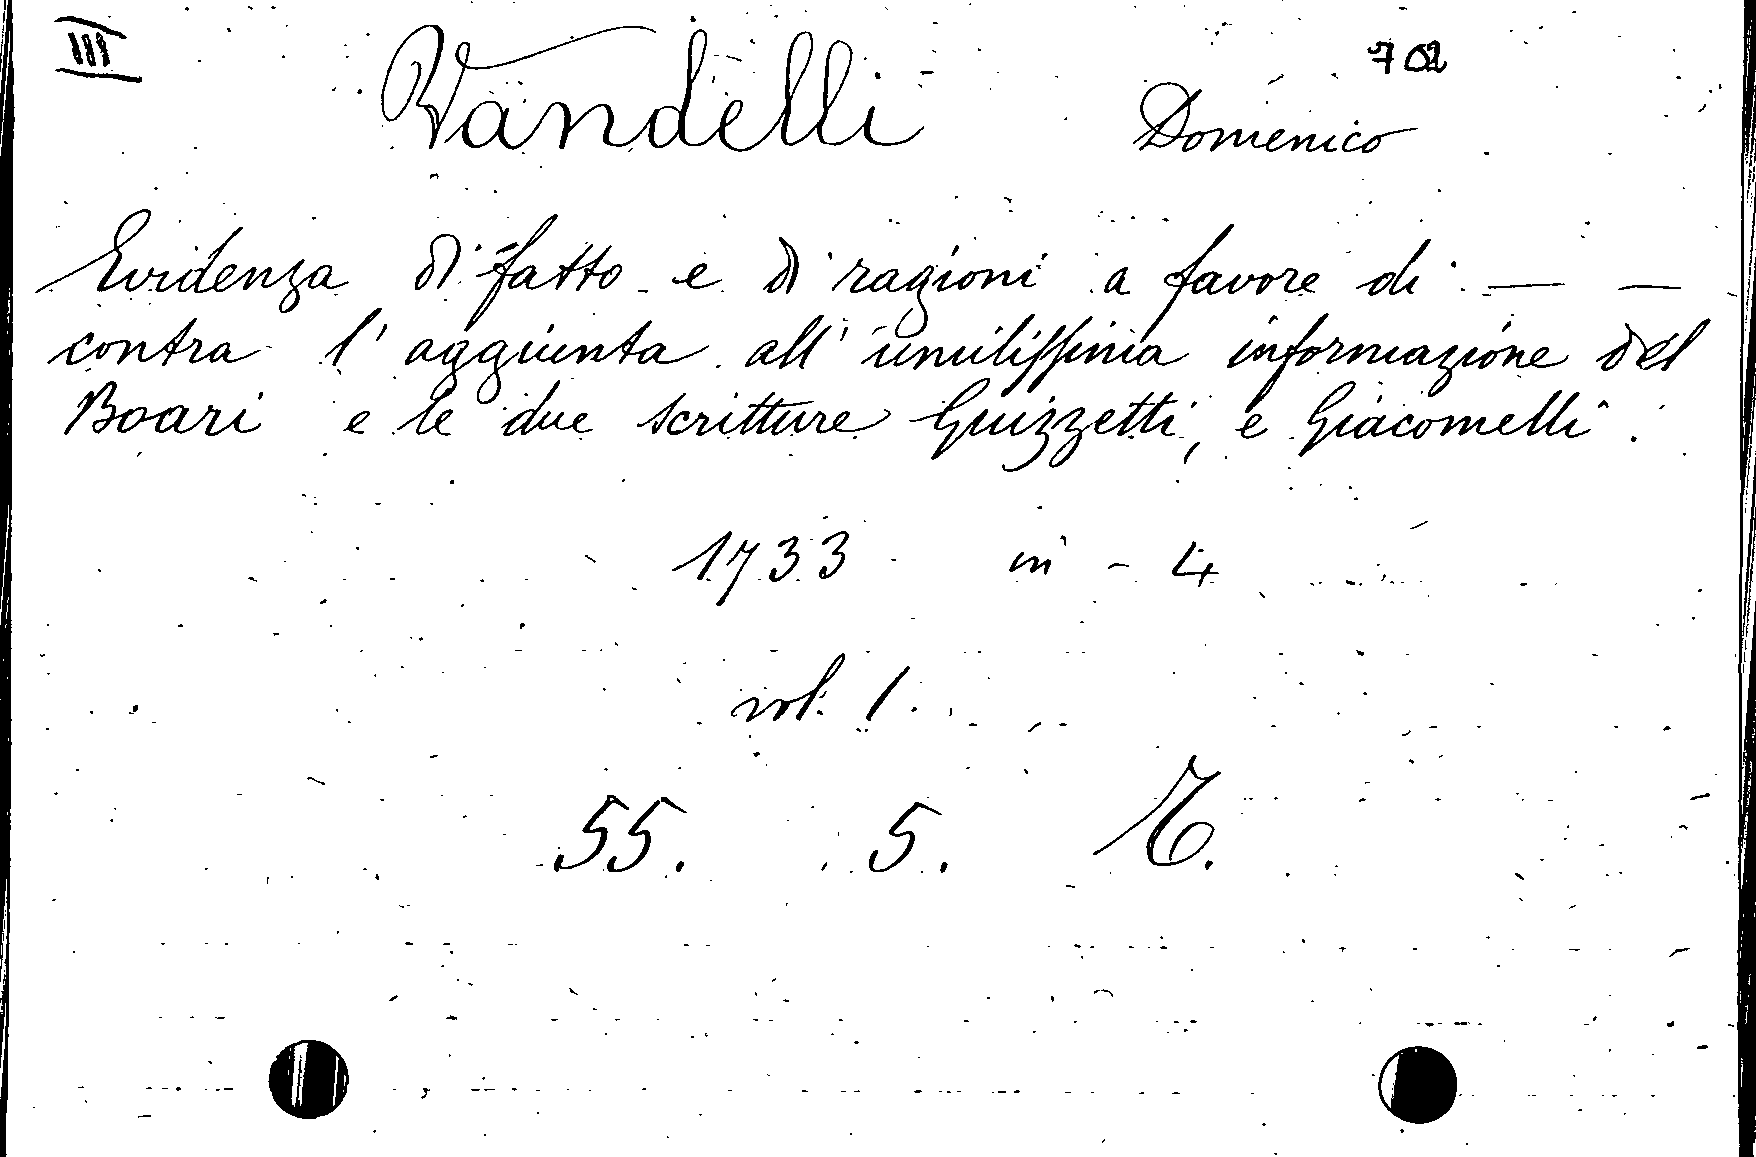 III
702
Vandelli Domenico
Evidenza di fatto e di ragioni a favore di — —
contra l'aggiunta all'umilissima informazione del
Boari e le due scritture Guizzetti, e Giacomelli.
1733 in - 4
vol. 1.
55. 5.